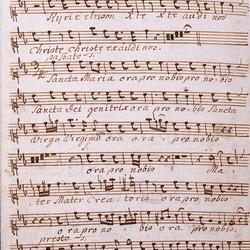 Kyrie eleison Xte Xte audi nos
Christe, christe exaudi nos.
Sancta Maria ora pro nobis pro nobis
Sancta Dei genitrix ora pro nobis Sancta
Virgo Virginum ora ora, pro nobis
ora pro nobis Ma,
ter Mater Crea, toris ora pro nobis
ora pro no, bis ora pro nobis.
presto